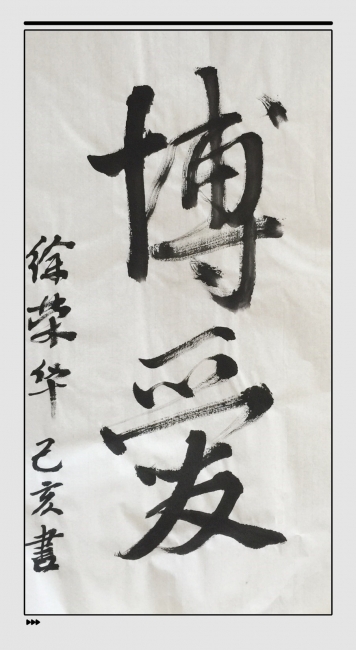 博爱
徐荣华 己亥書